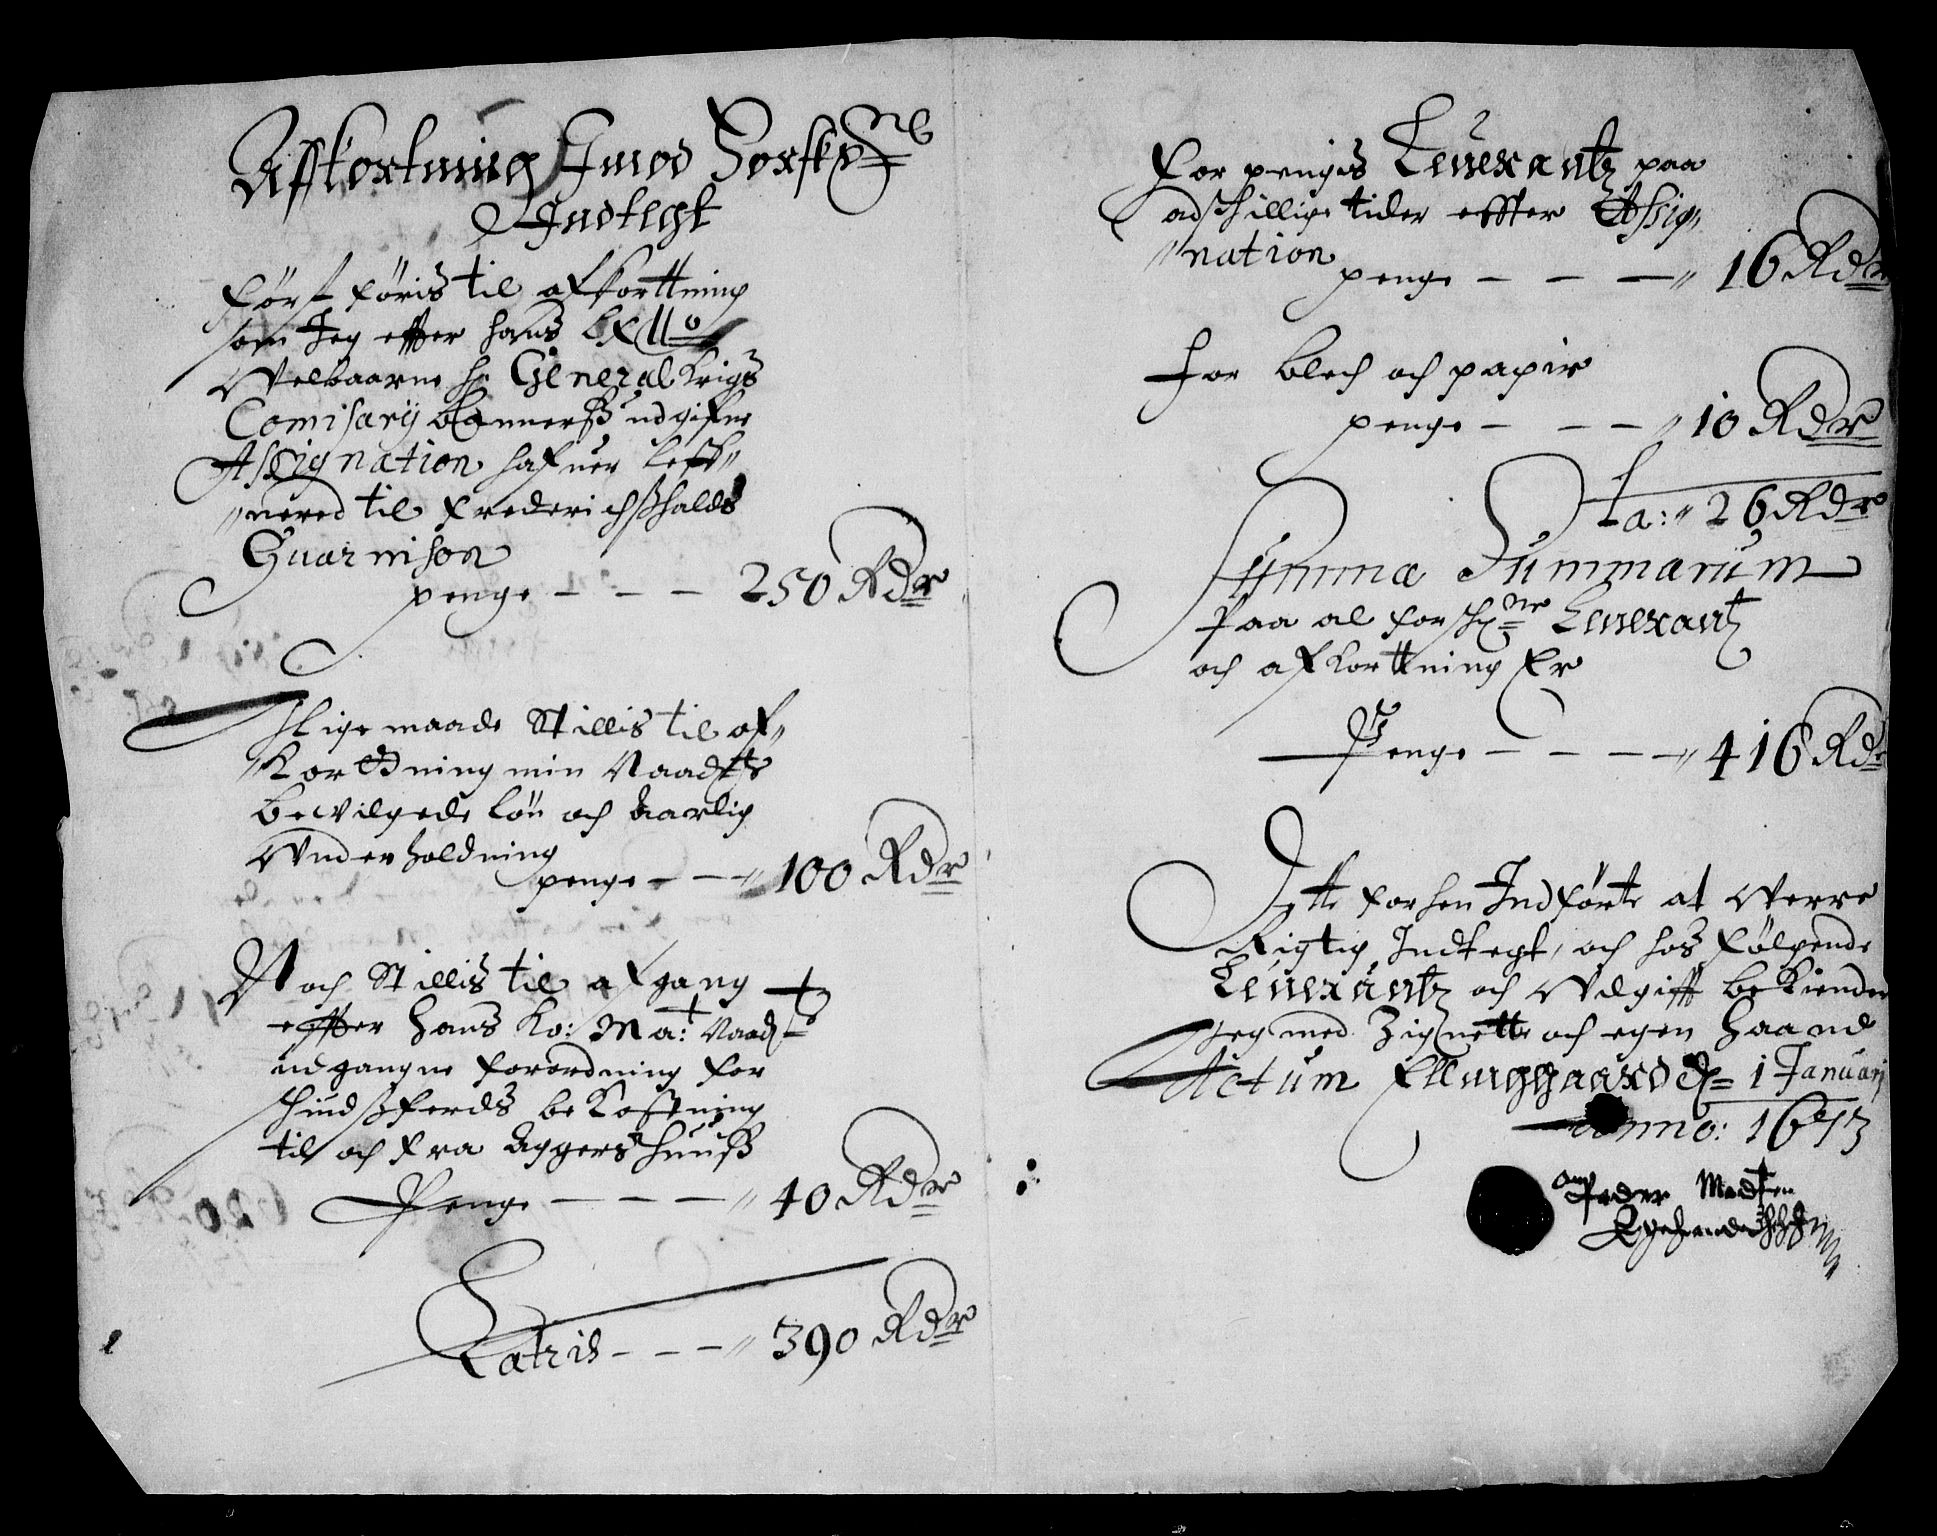 Affkortning Imod Forskne
Indtegt
Først føris til afkorttning
som Jeg effter hans Exllo
Welbaarne hr General Krigs
Comisarij Banners udgifne
Assignation hafuer leff„
„nered til Frederichshalds
Guarnison
penge — — — 250 Rdr
Iligemaade Stillis til af„
Kortning min Naadgst
bevilgede løn och Aarlig
Underholdning
penge — — „ 100 Rdr
Noch Stillis til afgang
effter Hans Ko: Ma: Naadst
udgangne forordning for
schudsferds bekostning
til och fra Aggershuuss
Penge — — — „ 40 Rdr
Latris — — — „ 390 Rdr
For pengis Leuerantz paa
adschillige tider effter Assig„
„nation
penge — — — „ 16 Rdr
For blech och papir
penge — — — „ 10 Rdr
Lta: „ 26 Rdr
Summa Summarum
Paa al forschne Leuerantz
och afkorttning Er
Penge — — — „ 416 Rdr
Dette forhen Indførte at Werre
Rigtig Indtegt, och hos følgende
Leuerantz och Udgifft bekiender
Jeg med Zignette och egen Haand
Actum Ellinggaard d: 1 Januarij
Anno: 1673
Peder Madtsen
Egehende